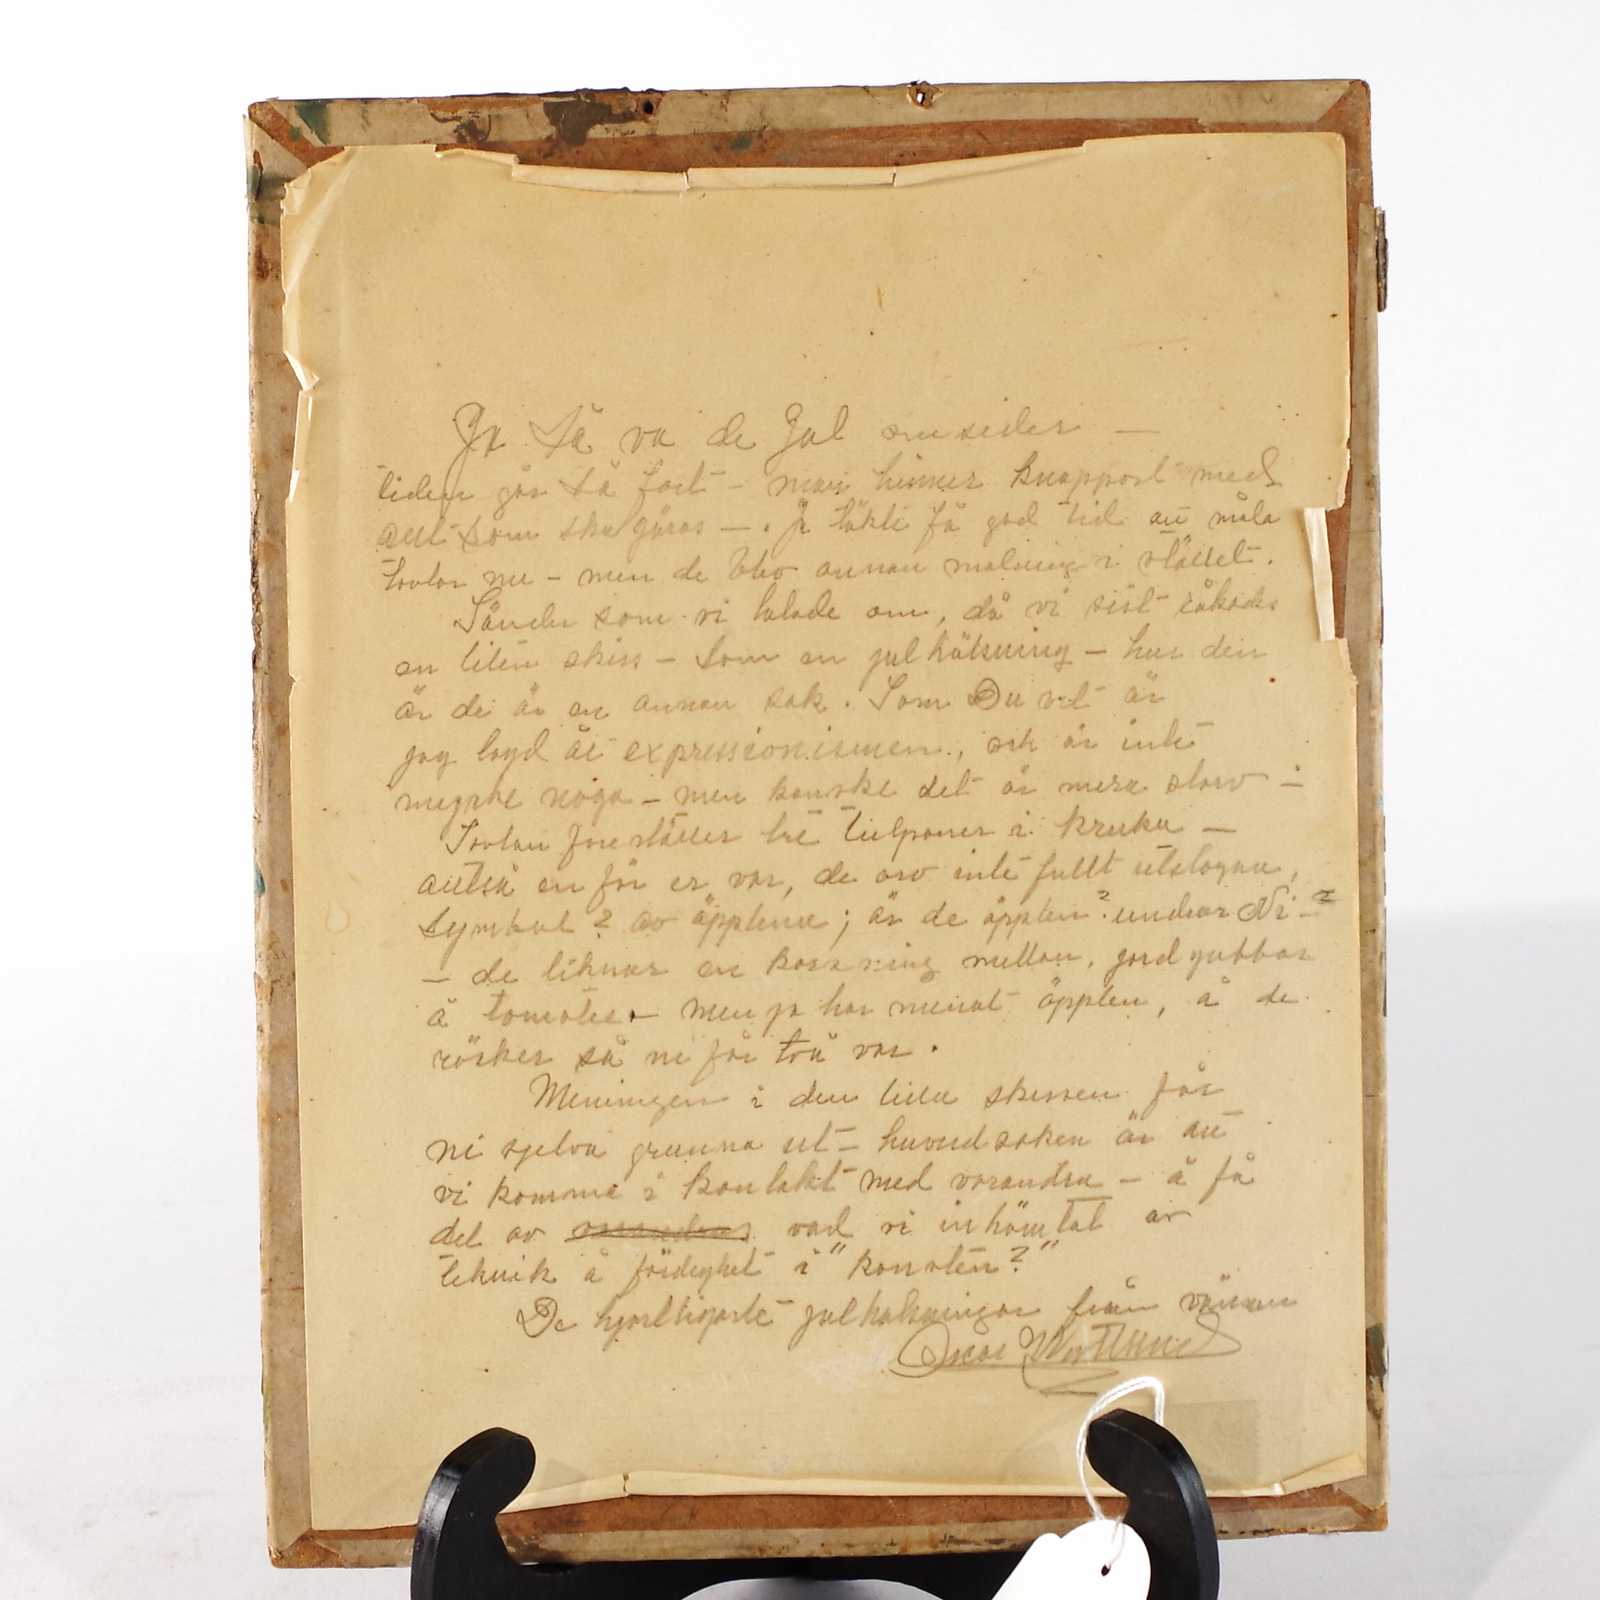 Ja så va de Jul omsider —
tiden går så fort – man hinner knappast med
allt som ska göras — . Ja tänkte få god tid att måla
tavlor nu – men de blev annan målning i stället.
Sänder som vi talade om, då vi sist råkades
en liten skiss – som en julhälsning – hur den
är de är en annan sak. Som Du vet är
jag lagd åt expressionismen, och är inte
mycke noga – men kanske det är mera slarv –
Tavlan föreställer tre tulpaner i kruka –
alltså en för er var, de är inte fullt utslagna,
symbol? av äpplena; är de äpplen? undrar Ni –?
– de liknar en korsning mellan jordgubbar
å tomater – men ja har menat äpplen, å de
räcker så ni får två var.
Meningen i den lilla skissen får
ni sjelva grunna ut – huvudsaken är att
vi komma i kontakt med varandra – å få
del av vad vi inhämtat av
teknik å färdighet i "konsten?"
De hjärtligaste julhälsningar från vännen
Oscar